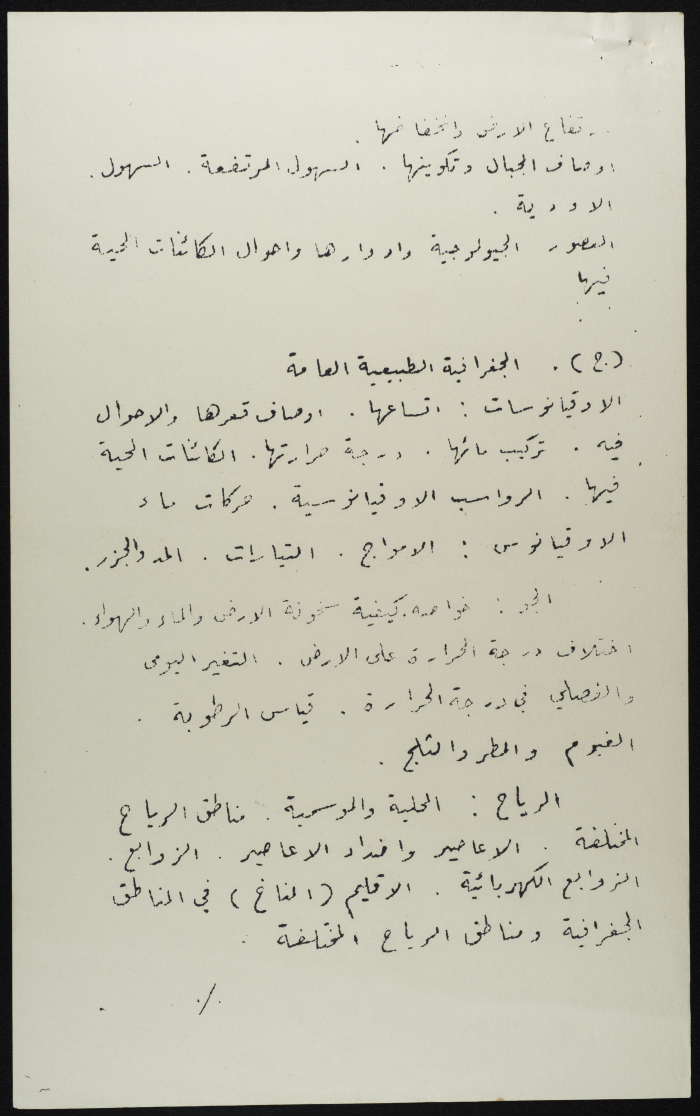 ارتفاع الارض وانخفاضها .
اوصاف الجبال وتكوينها . السهول المرتفعة . السهول .
الاودية .
العصور الجيولوجية وادوارها واحوال الكائنات الحية
فيها
(ج) . الجغرافية الطبيعية العامة
الاوقيانوسات : اتساعها . اوصاف قعرها والاحوال
فيه . تركيب مائها . درجة حرارتها . الكائنات الحية
فيها . الرواسب الاوقيانوسية . حركات ماء
الاوقيانوس : الامواج . التيارات . المد والجزر .
الجو : خواصه . كيفية سخونة الارض والماء والهواء .
اختلاف درجة الحرارة على الارض . التغير اليومي
والفصلي في درجة الحرارة . قياس الرطوبة .
الغيوم والمطر والثلج .
الرياح : المحلية والموسمية . مناطق الرياح
المختلفة . الاعاصير واضداد الاعاصير . الزوابع .
الزوابع الكهربائية . الاقليم (المناخ) في المناطق
الجغرافية ومناطق الرياح المختلفة .
./.